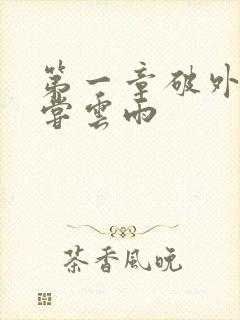 第一章破外
尝雲雨
茶香風晚